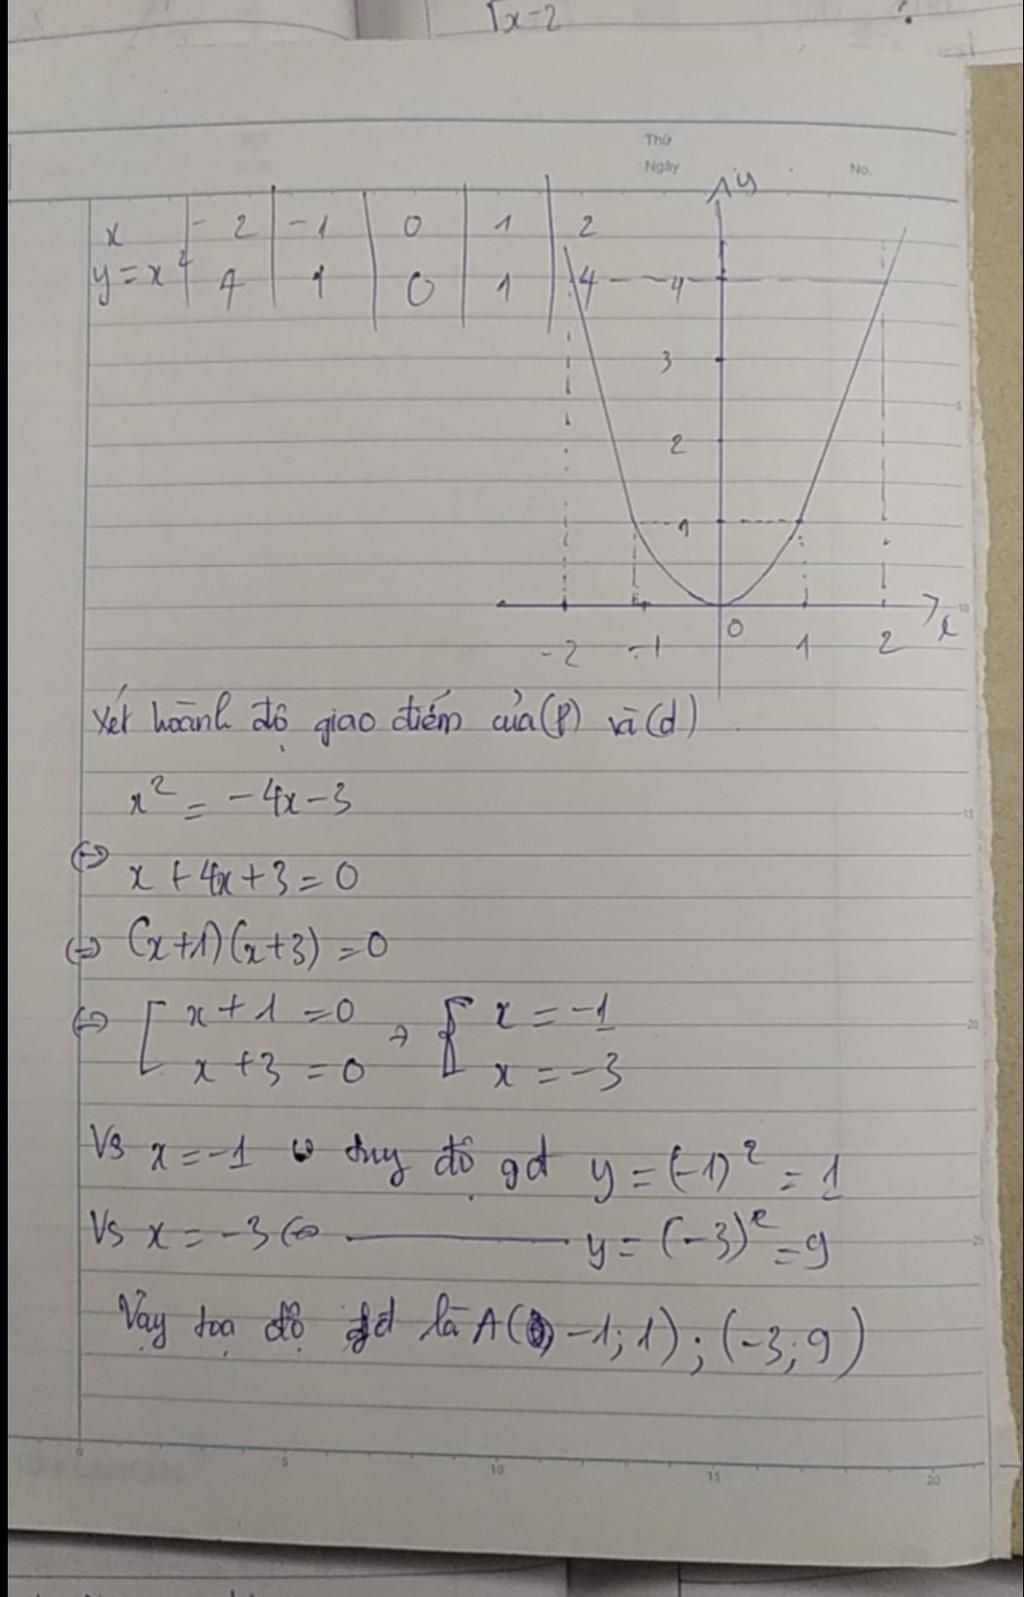 √x-2
Thứ
Ngày
No.
x -2 -1 0 1 2
y=x² 4 1 0 1 4
y
4
3
2
1
-2 -1 0 1 2 x
Xét hoành độ giao điểm của (P) và (d)
x² = -4x-3
⇔ x + 4x + 3 = 0
⇔ (x+1)(x+3) = 0
⇔ [ x + 1 = 0 → [ x = -1
x + 3 = 0 x = -3
Vs x = -1 ⇔ tuy độ gđ y = (-1)² = 1
Vs x = -3 ⇔ ——— y = (-3)² = 9
Vạy toạ độ gđ là A( -1; 1) ; (-3; 9)
5
10
15
20
25
0 5 10 15 20